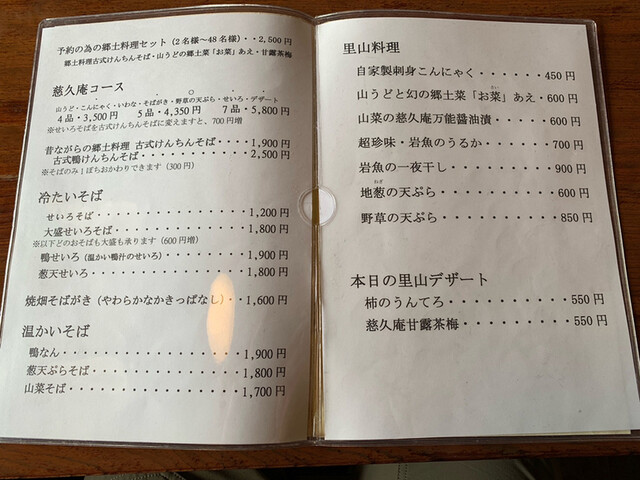 予約の為の郷土料理セット(2名様～48名様)・・2,500円
郷土料理古式けんちんそば・山うどの郷土菜「お菜」あえ・甘露茶梅
慈久庵コース
山うど・こんにゃく・いわな・そばがき・野草の天ぷら・せいろ・デザート
4品・3,500円 5品・4,350円 7品・5,800円
※せいろそばを古式けんちんそばに変えますと、700円増
昔ながらの郷土料理 古式けんちんそば・・・・1,900円
古式鴨けんちんそば・・・・・・・2,500円
※そばのみ1ぼちおかわりできます(300円)
冷たいそば
せいろそば・・・・・・・・・・・・・・1,200円
大盛せいろそば・・・・・・・・・・・・1,800円
※以下どのおそばも大盛も承ります(600円増)
鴨せいろ(温かい鴨汁のせいろ)・・・・・・1,900円
葱天せいろ・・・・・・・・・・・・・・1,800円
焼畑そばがき(やわらかなかきっぱなし)・・1,600円
温かいそば
鴨なん・・・・・・・・・・・・・・・・1,900円
葱天ぷらそば・・・・・・・・・・・・・1,800円
山菜そば・・・・・・・・・・・・・・・1,700円
里山料理
自家製刺身こんにゃく・・・・・・450円
山うどと幻の郷土菜「お菜」あえ・600円
山菜の慈久庵万能醤油漬・・・・・600円
超珍味・岩魚のうるか・・・・・・700円
岩魚の一夜干し・・・・・・・・・900円
地葱の天ぷら・・・・・・・・・・600円
野草の天ぷら・・・・・・・・・・850円
本日の里山デザート
柿のうんてろ・・・・・・・・・・550円
慈久庵甘露茶梅・・・・・・・・・550円